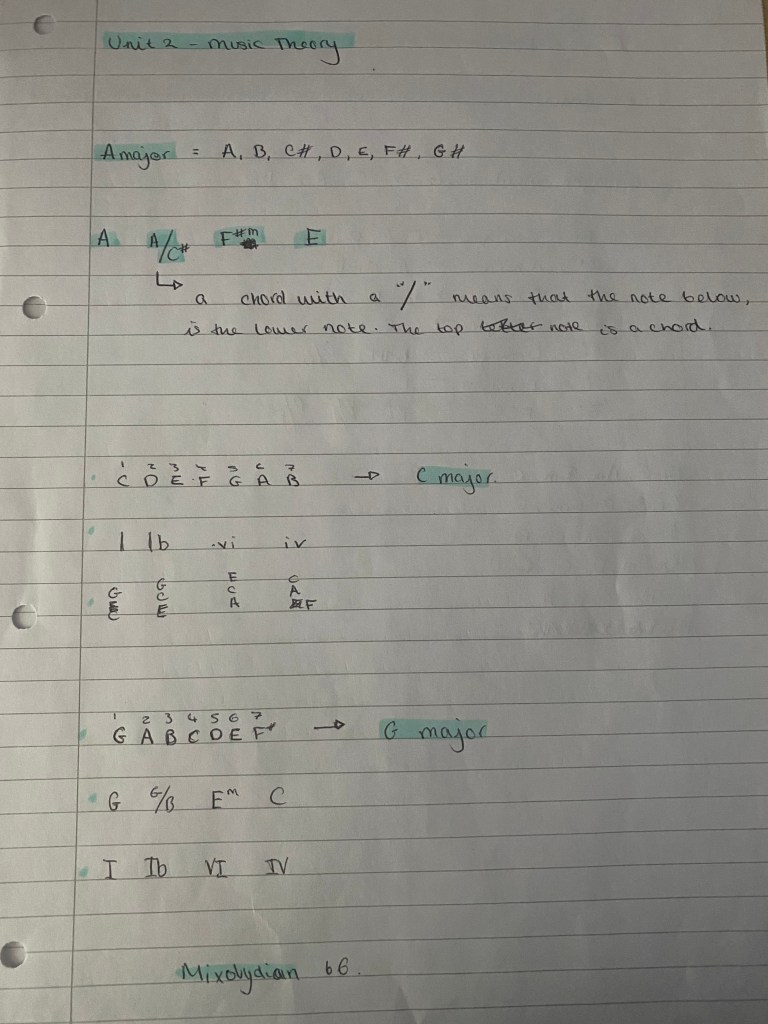 Unit 2 - Music Theory
A major = A, B, C#, D, E, F#, G#
A A/C# F#m E
↳ a chord with a "/" means that the note below,
is the lower note. The top note is a chord.
1 2 3 4 5 6 7
C D E F G A B → C major.
I Ib vi iv
G G E C
E C C A
C E A F
1 2 3 4 5 6 7
G A B C D E F# → G major
G G/B Em C
I Ib VI IV
Mixolydian b6.